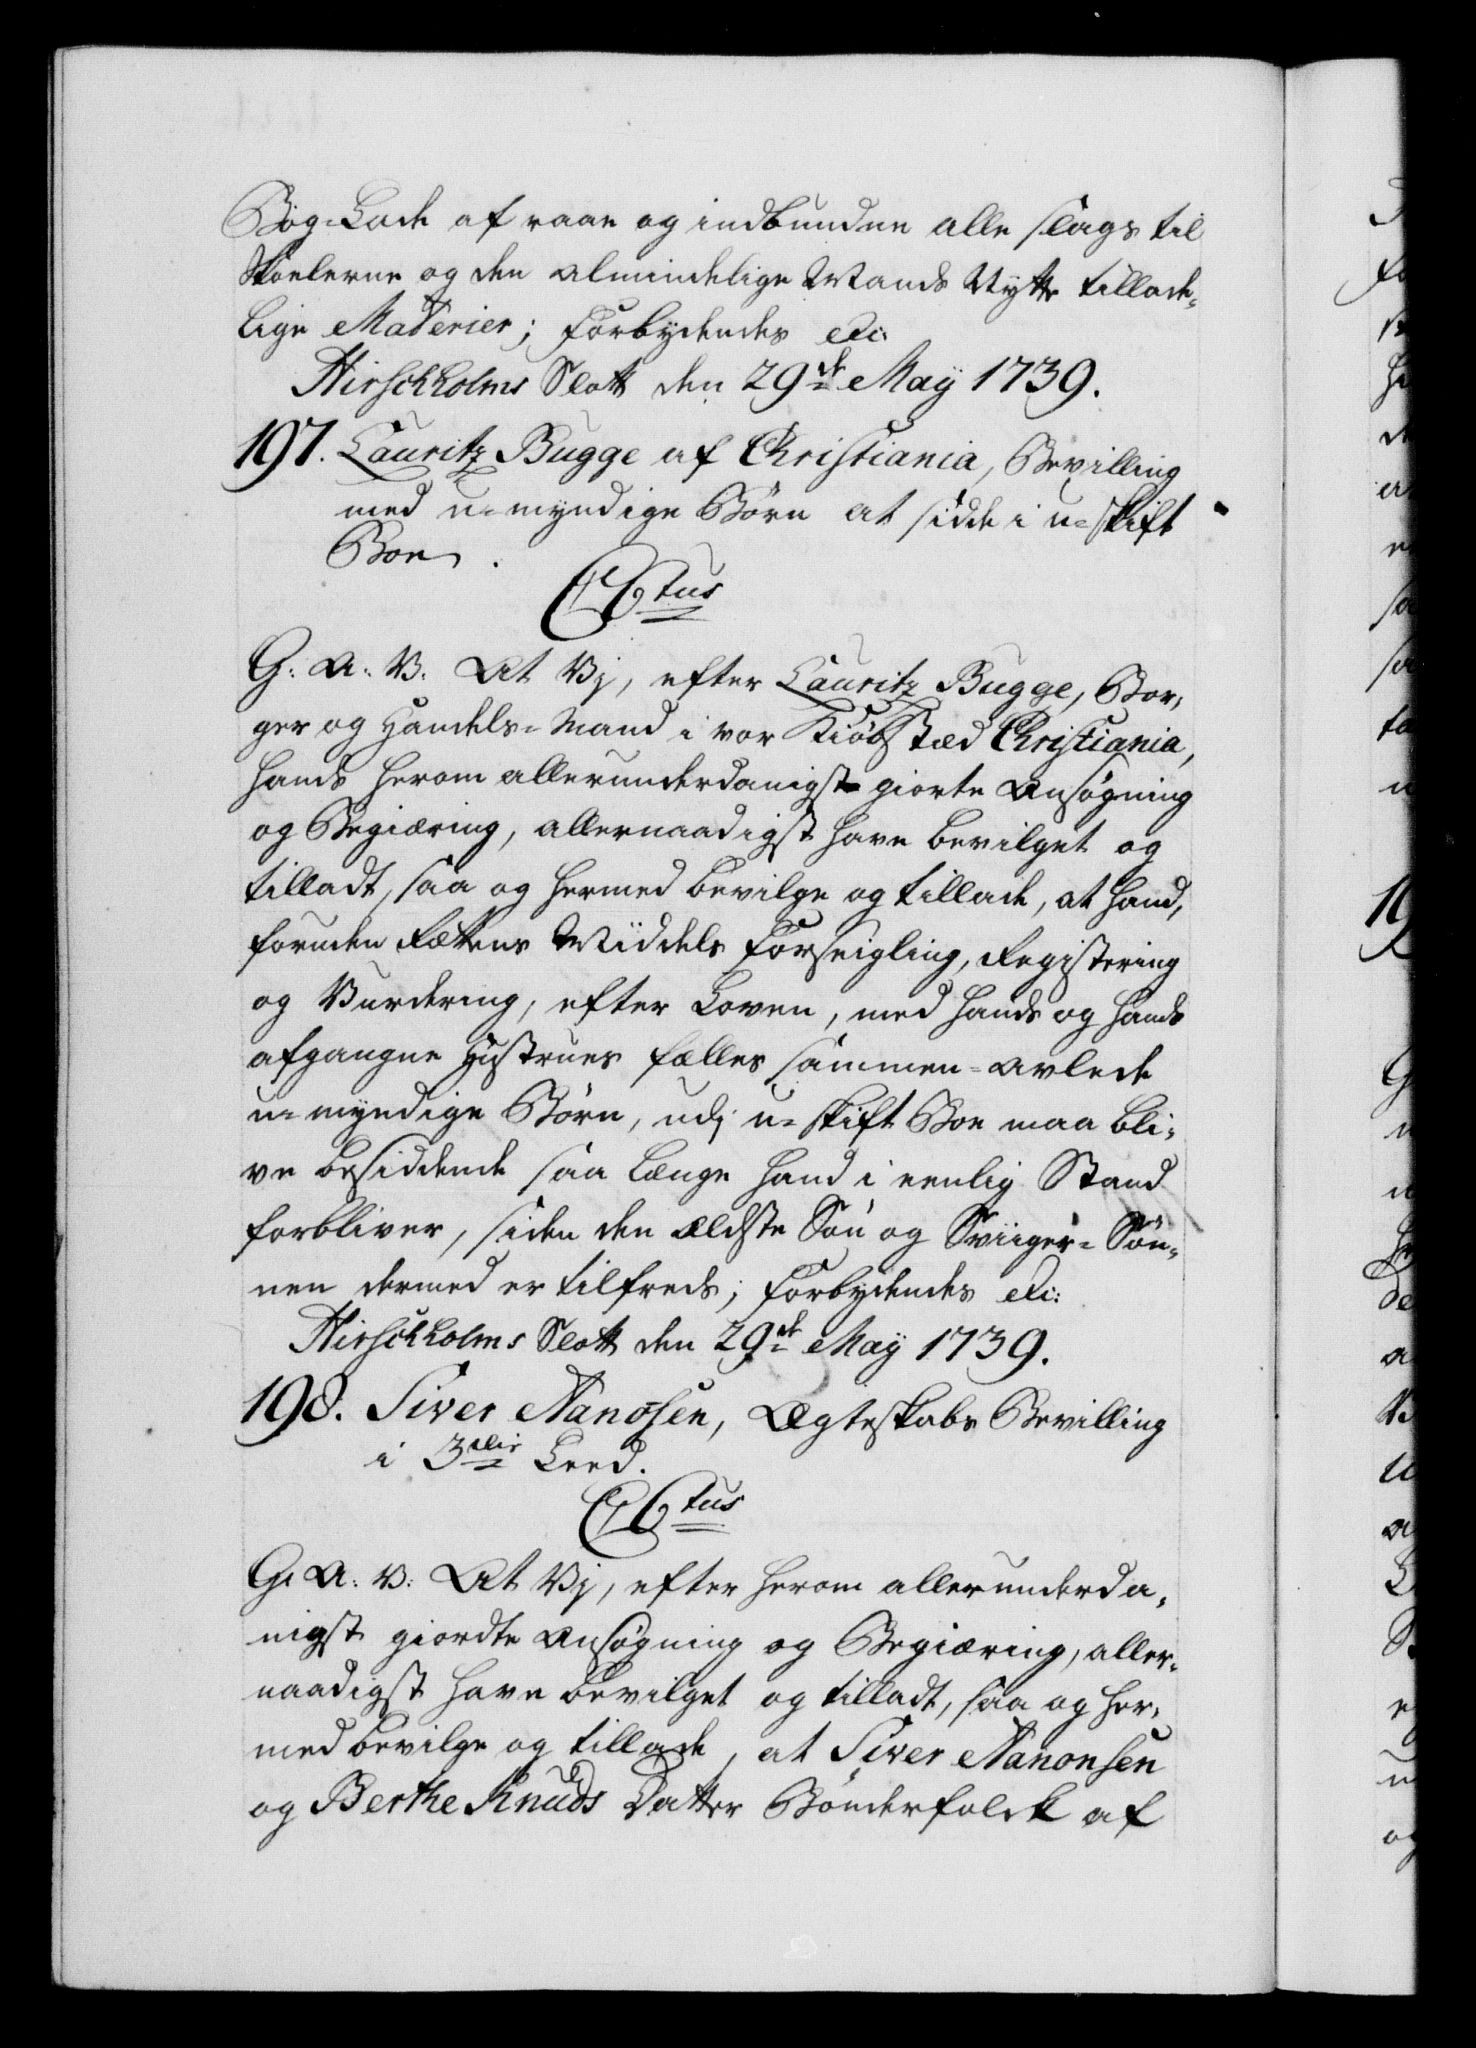 Bog-Lade af raae og indbundne alle slags til
Skoelerne og den almindelige Mands Nytte tillade¬
lige Materier; Forbydendes etc:
Hirschholms Slott den 29de May 1739.
197. Lauritz Bugge af Christiania, Bevilling
med u-myndige Børn at sidde i u-skift
Boe.
C6tus
G. A. V. At Vj, efter Lauritz Bugge, Bor¬
ger og Handels-Mand i vor Kiøbstæd Christiania,
hands herom allerunderdanigst giorte Ansøgning
og Begiæring, allernaadigst have bevilget og
tilladt, saa og hermed bevilge og tillade, at hand,
foruden Rættens Middels Forseigling, Registering
og Vurdering, efter Loven, med hands og hands
afgangne Hustrues fælles sammen-avlede
u-myndige Børn, udj u-skift Boe maa bli¬
ve besiddende saa længe hand i eenlig Stand
forbliver, siden den ældste Søn og Sviiger-Søn¬
nen dermed er tilfreds; Forbydendes etc:
Hirschholms Slott den 29de May 1739.
198. Siver Nanosen, Ægteskabs Bevilling
i 3die Leed.
C6tus
G. A. V. At Vj, efter herom allerunderda¬
nigst giordte Ansøgning og Begiæring, aller¬
naadigst have bevilget og tilladt, saa og her¬
med bevilge og tillade, at Siver Nanonsen
og Berthe Knuds Datter Bønderfolck af